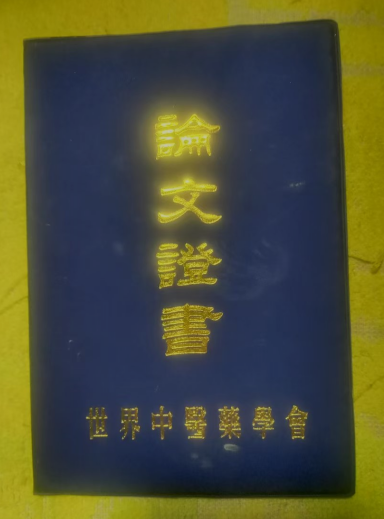 論文證書
世界中醫藥學會